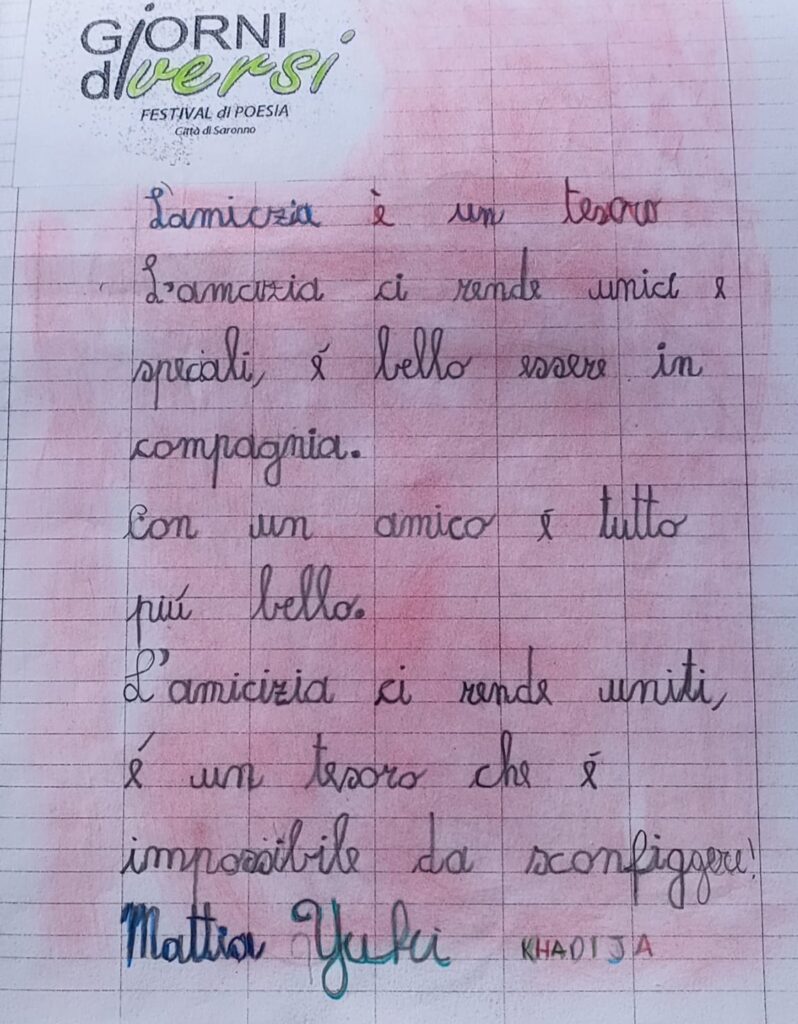 GIORNI
diversi
FESTIVAL di POESIA
Città di Saronno
L'amiczia è un tesoro
L'amicizia ci rende unici e
speciali, é bello essere in
compagnia.
Con un amico é tutto
piú bello.
L'amicizia ci rende uniti,
é un tesoro che é
impossibile da sconfiggere!
Mattia Yuki KHADIJA